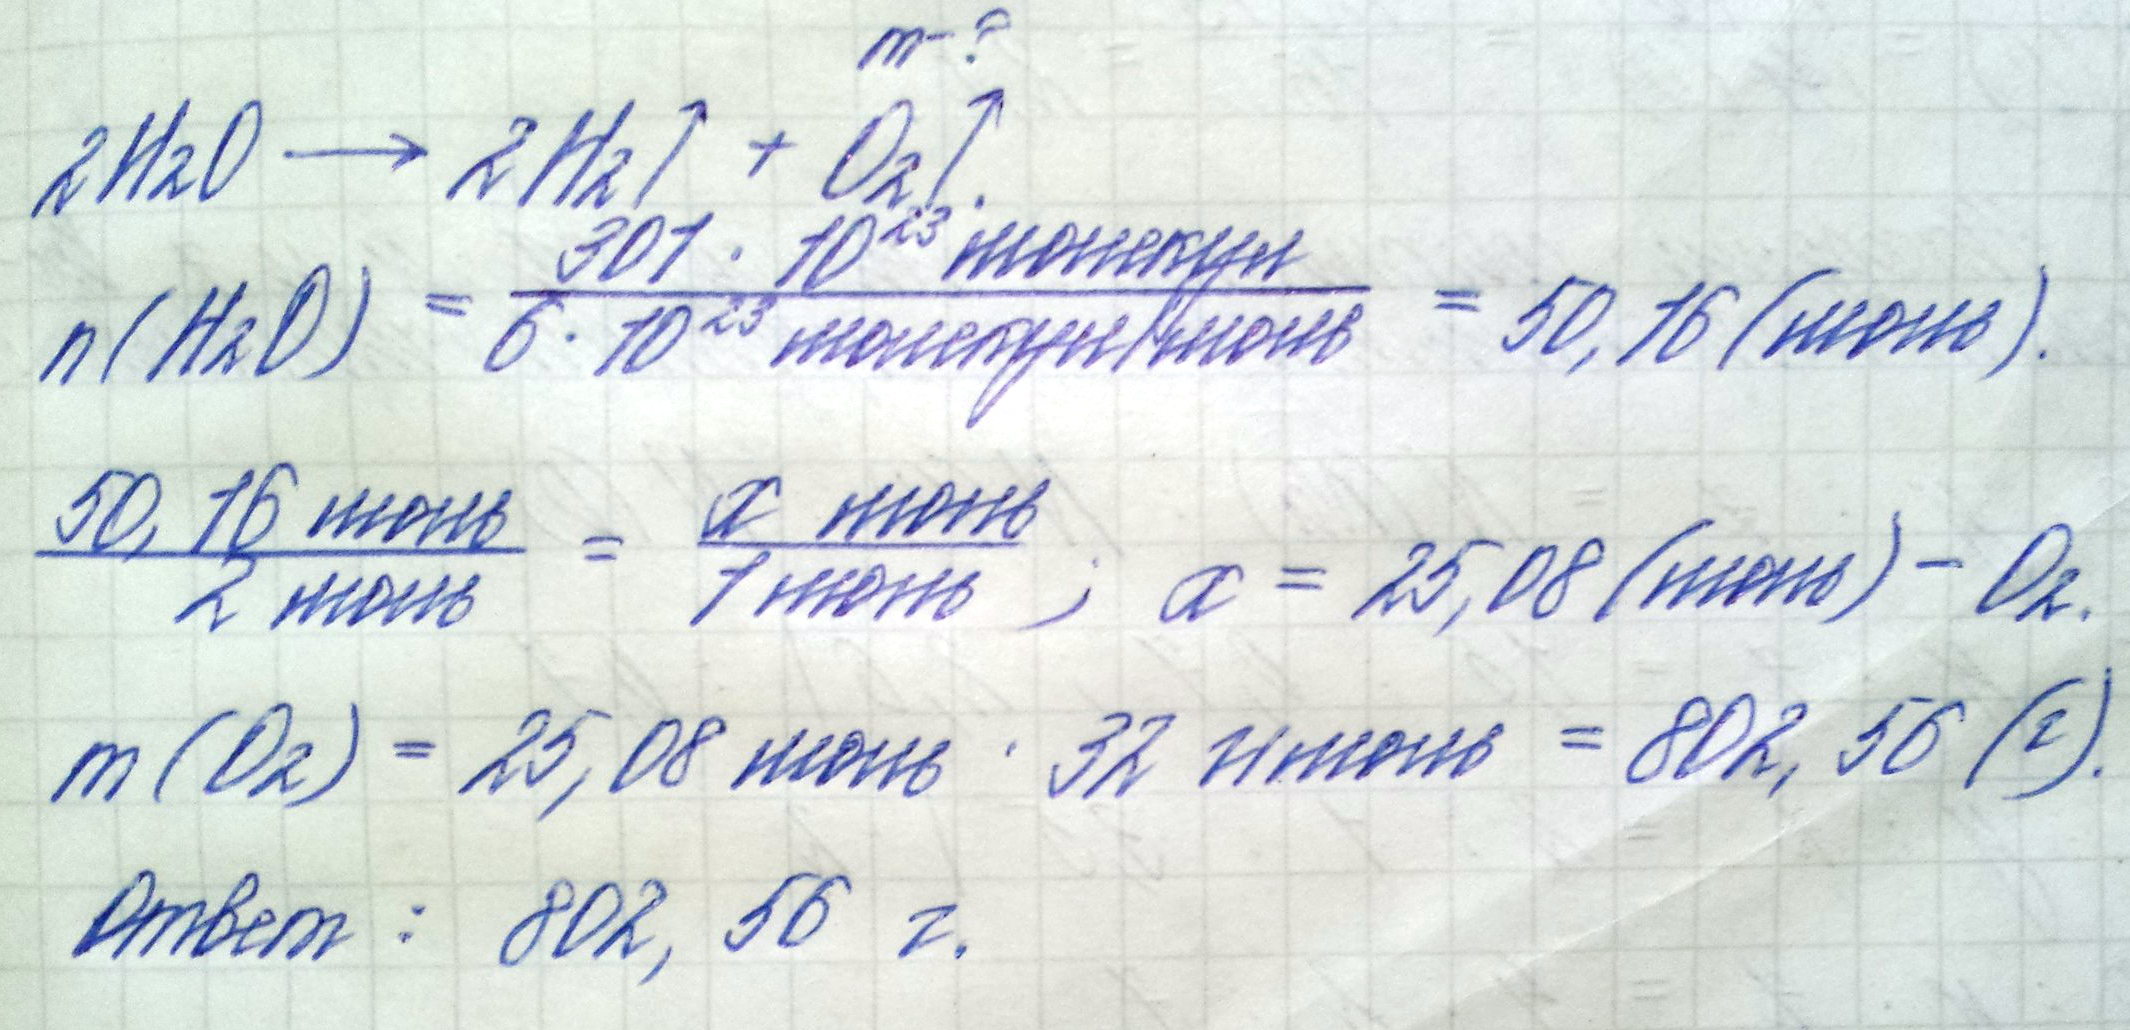 m-?
2H₂O → 2H₂↑ + O₂↑.
n(H₂O) = 301 · 10²³ молекул / 6 · 10²³ молекул/моль = 50,16 (моль).
50,16 моль / 2 моль = x моль / 1 моль ; x = 25,08 (моль) - O₂.
m(O₂) = 25,08 моль · 32 г/моль = 802,56 (г).
Ответ : 802,56 г.